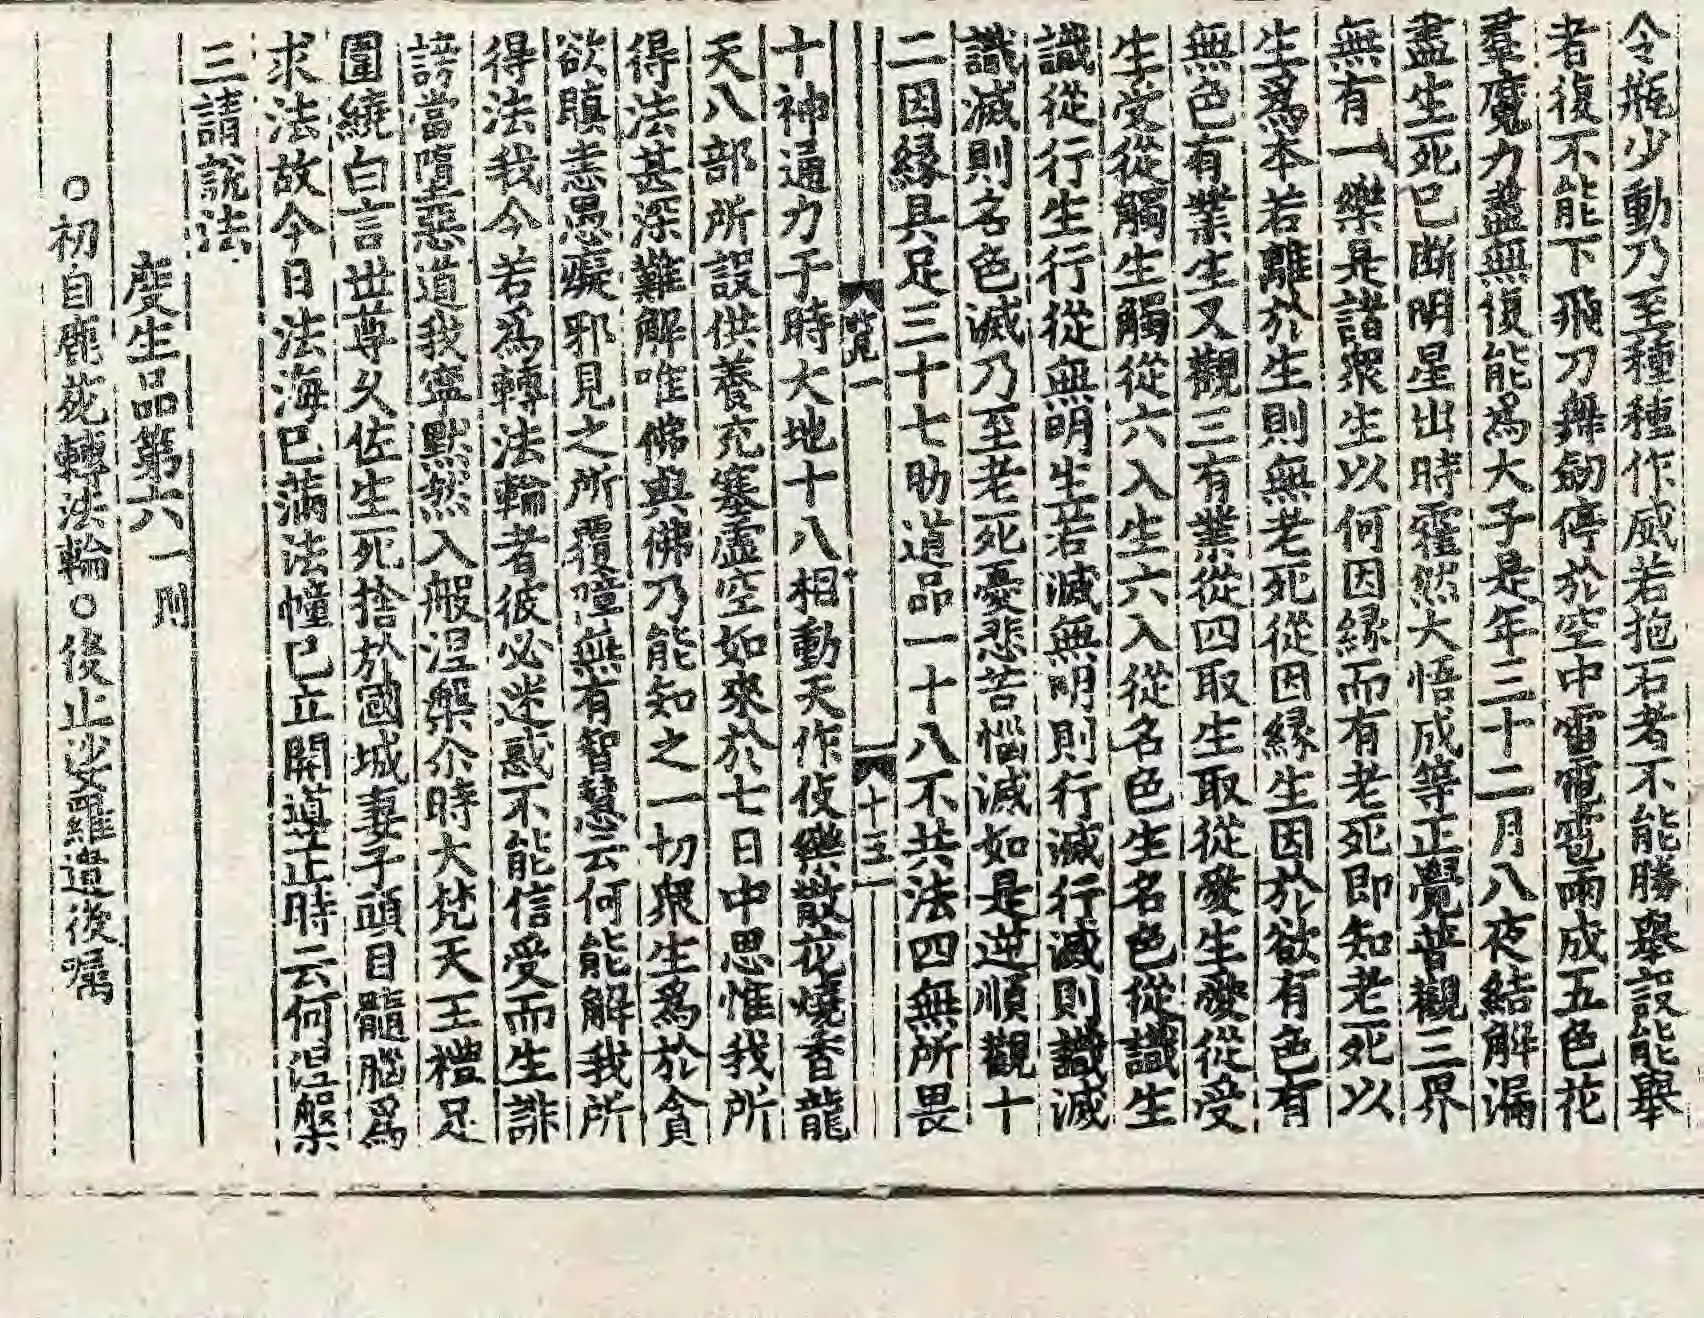 令瓶少動乃至種種作威若抱石者不能勝舉設能舉
者復不能下飛刀舞劒停於空中雷電雹雨成五色花
羣魔力盡無復能爲大子是年三十二月八夜結解漏
盡生死已断明星出時霍然大悟成等正覺普觀三界
無有一樂是諸衆生以何因緣而有老死即知老死以
生爲本若離於生則無老死從因緣生因於欲有色有
無色有業生又觀三有業從四取生取從愛生愛從受
生受從觸生觸從六入生六入從名色生名色從識生
識從行生行從無明生若滅無明則行滅行滅則識滅
識滅則名色滅乃至老死憂悲苦惱滅如是逆順觀十
二因緣具足三十七助道品一十八不共法四無所畏
覽一
十五
十神通力于時大地十八相動天作伎樂散花燒香龍
天八部所設供養充塞虛空如來於七日中思惟我所
得法甚深難解唯佛與佛乃能知之一切衆生爲於貪
欲瞋恚愚癡邪見之所覆瞳無有智慧云何能解我所
得法我今若爲轉法輪者彼必迷惑不能信受而生誹
謗當墮惡道我寧默然入般涅槃尒時大梵天王禮足
圍繞白言世尊乆佐生死捨於國城妻子頭目髓腦爲
求法故今日法海已滿法幢已立開導正時云何涅槃
三請說法
度生品第六 一則
○初自鹿苑轉法輪○後止娑羅遺後囑